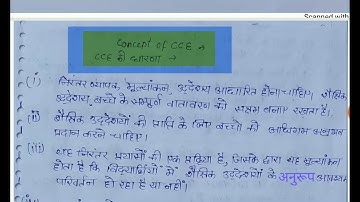 Scanned with
Concept of CCE →
CCE की धारणा →
(i) निरंतर व्यापक मूल्यांकन, उद्देश्य आधारित होना चाहिए। शैक्षिक
उद्देश्य बच्चे के सम्पूर्ण वातावरण को सक्षम बनाए रखता है।
(ii) शैक्षिक उद्देश्यों की प्राप्ति के लिए बच्चों को अधिगम अनुभव
प्रदान करने चाहिए।
(iii) यह निरंतर प्रयासों की एक प्रक्रिया है, जिसके द्वारा यह मूल्यांकन
होता है कि विद्यार्थियों में शैक्षिक उद्देश्यों के अनुरूप आवश्यक
परिवर्तन हो रहा है या नहीं।